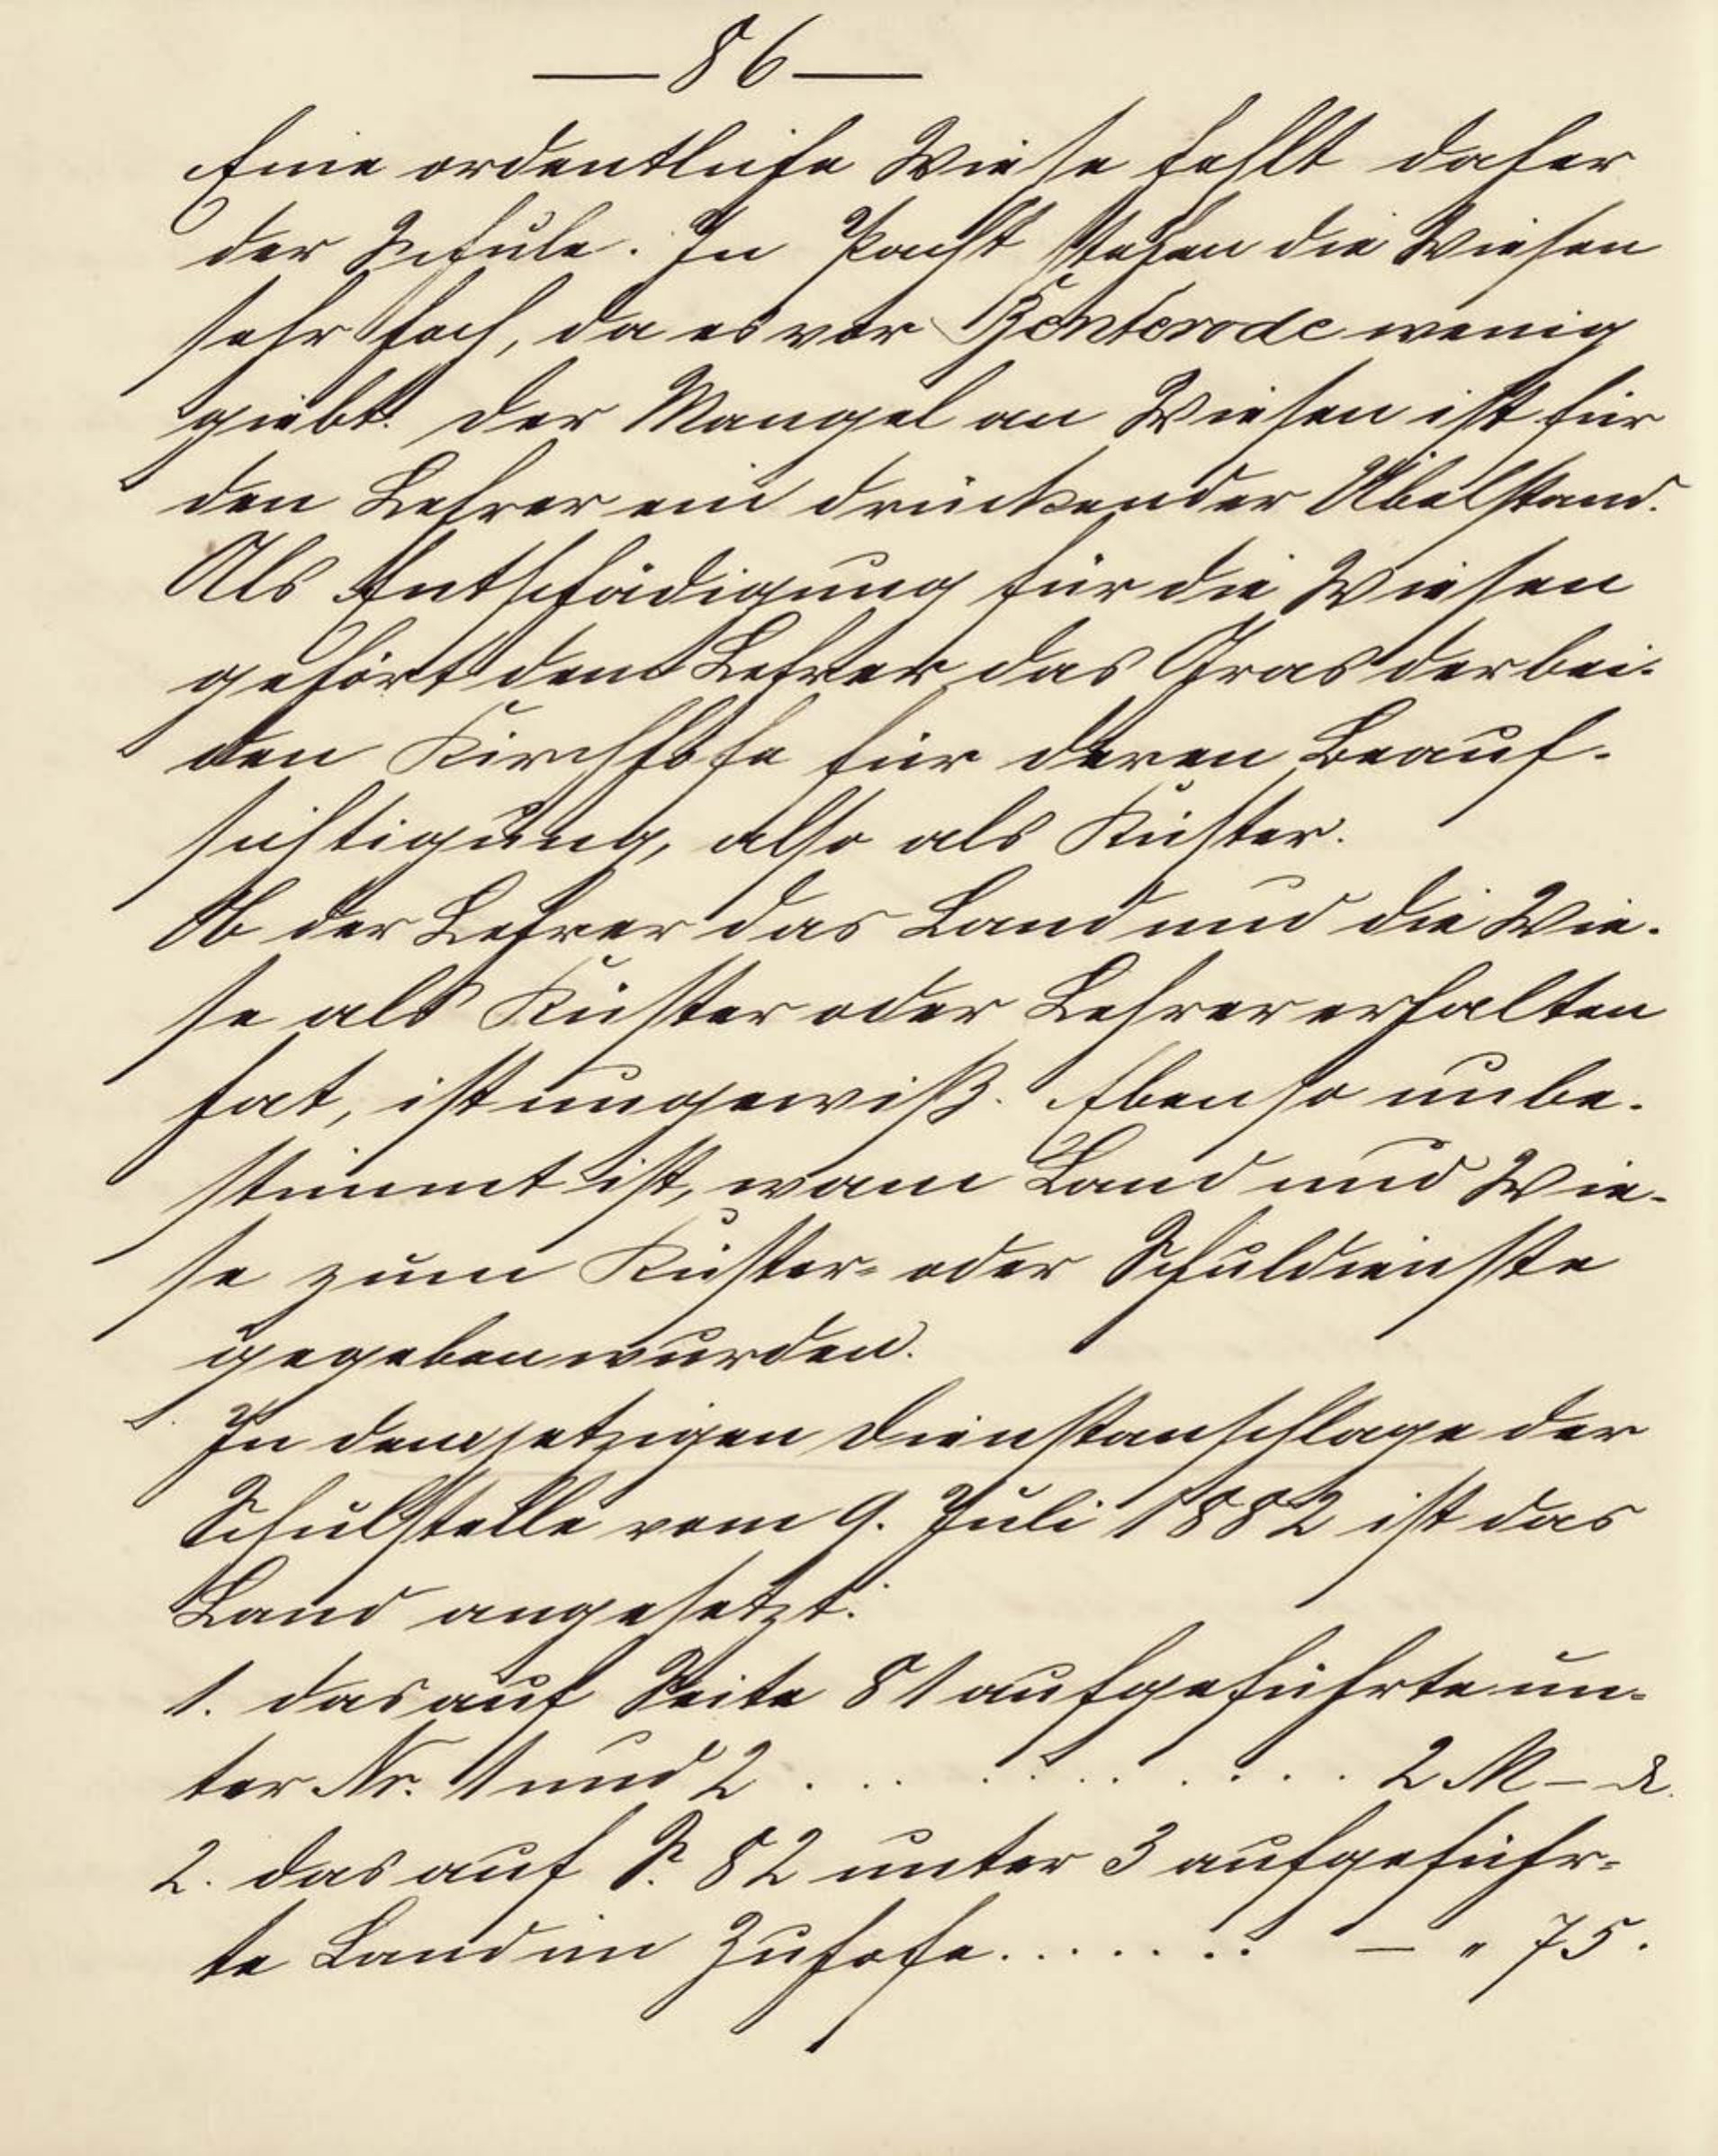 — 86 —
Eine ordentliche Wiese fehlt daher
der Schule. In Pacht stehen die Wiesen
sehr hoch, da es vor Benterode wenig
giebt. Der Mangel an Wiesen ist für
den Lehrer ein drückender Übelstand.
Als Entschädigung für die Wiesen
gehört dem Lehrer das Gras der bei-
den Kirchhöfe für deren Beauf-
sichtigung, also als Küster.
Ob der Lehrer das Land und die Wie-
se als Küster oder Lehrer erhalten
hat, ist ungewiß. Ebenso unbe-
stimmt ist, wann Land und Wie-
se zum Küster- oder Schuldienste
gegeben wurden.
In dem jetzigen Dienstanschlage der
Schulstelle vom 9. Juli 1882 ist das
Land angesetzt:
1. das auf Seite 81 aufgeführte un-
ter Nr. 1 und 2 . . . . . . . . . . 2 M – ₰.
2. das auf S. 82 unter 3 aufgeführ-
te Land im Zuhofe . . . . . . . — " 75.